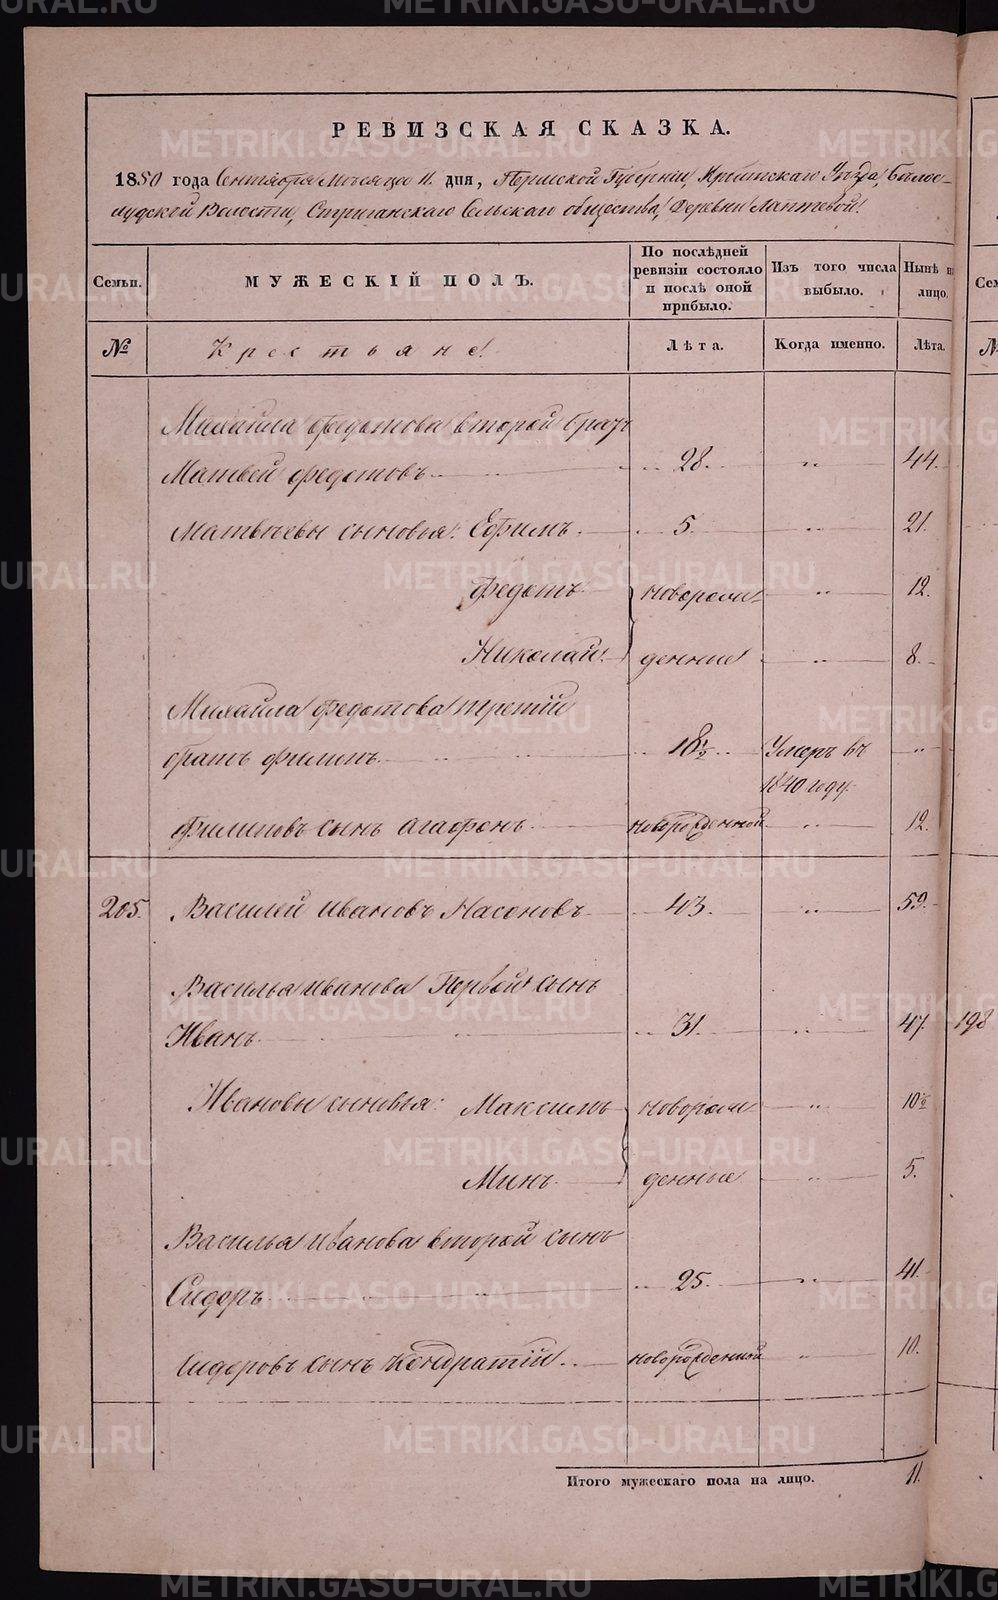 РЕВИЗСКАЯ СКАЗКА.
1850 года Сентября Месяца 11. дня, Пермской Губернии, Ирбитскаго Уезда, Бело-
слудской Волости, Стриганскаго Сельскаго общества, Деревни Лаптевой.
Семьи.
МУЖЕСКІЙ ПОЛЪ.
По послѣдней ревизіи состояло и послѣ оной прибыло.
Изъ того числа выбыло.
Нынѣ на лицо.
№
Крестьяне.
Лѣта.
Когда именно.
Лѣта.
Михаила Федотова второй братъ
Матвей Федотовъ 28. 44.
Матвѣевы сыновья: Ефимъ 5. 21.
Федотъ новорож- 12.
Николай денные 8.
Михаила Федотова третій
братъ Филипъ 18½ Умеръ въ
1840 году.
Филиповъ сынъ Агафонъ новорожденной 12.
205. Василей Ивановъ Насоновъ 43. 59.
Василья Иванова Первой сынъ
Иванъ 31. 47.
198
Ивановы сыновья: Максимъ новорож 10½
Минъ денные 5.
Василья Иванова второй сынъ
Сидоръ 25. 41.
Сидоровъ сынъ Кондратій новорожденной 10.
Итого мужескаго пола на лицо. 11.
METRIKI.GASO-URAL.RU